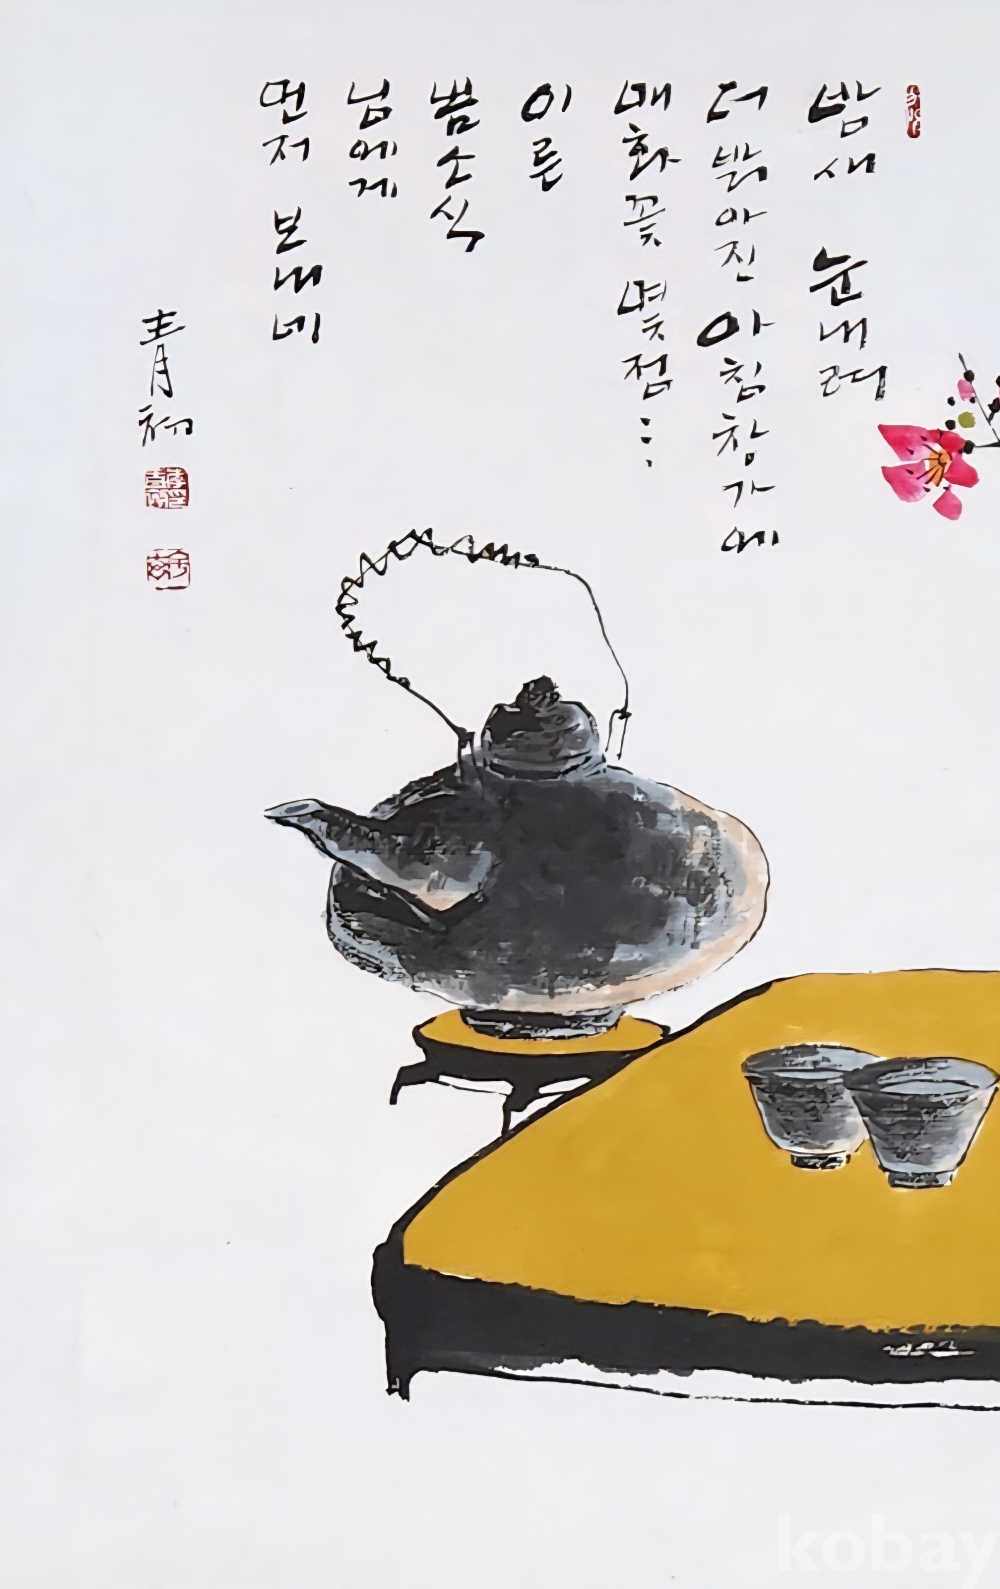 밤새 눈내려
더 밝아진 아침창가에
매화꽃 몇점...
이른
봄소식
님에게
먼저 보내네
青初
kobay